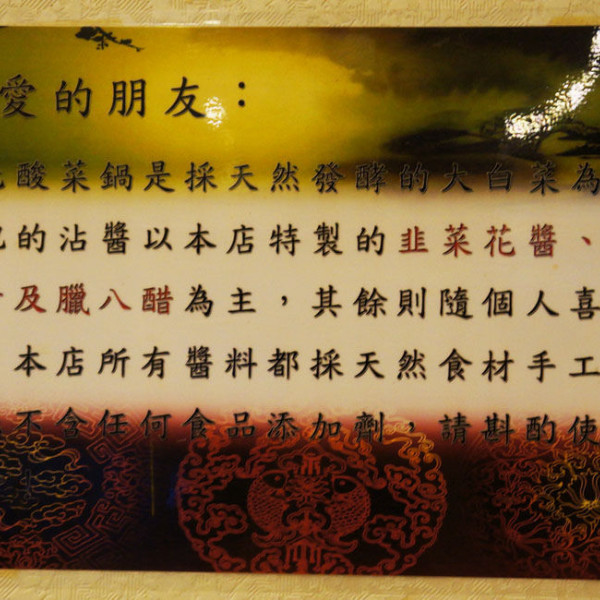 愛的朋友：
酸菜鍋是採天然發酵的大白菜為
的沾醬以本店特製的韭菜花醬、
及臘八醋為主，其餘則隨個人喜
本店所有醬料都採天然食材手工
不含任何食品添加劑，請斟酌使